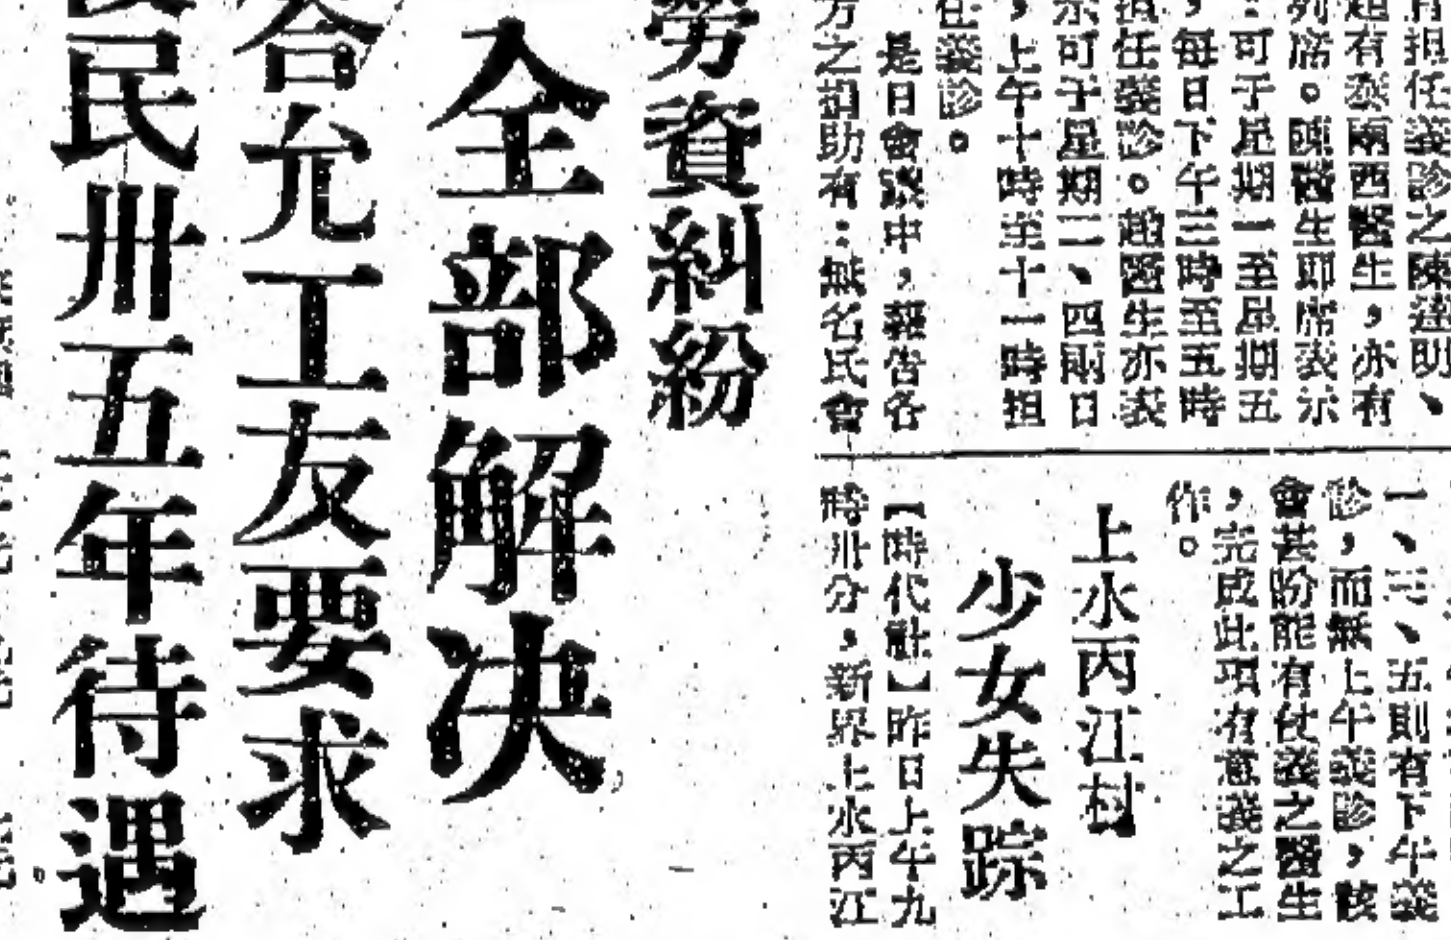 担任義診之陳達明、
趙有泰兩西醫生，亦有
列席。陳醫生即席表示
：可于星期一至星期五
，每日下午三時至五時
担任義診。趙醫生亦表
示可于星期二、四兩日
，上午十時至十一時担
任義診。
是日會談中，報告各
方之捐助有：無名氏會
一、三、五則有下午義
診，而無上午義診，該
會甚盼能有仗義之醫生
，完成此項有意義之工
作。
上水丙江村
少女失踪
【時代社】昨日上午九
時卅分，新界上水丙江
勞資糾紛
全部解决
答允工友要求
民卅五年待遇